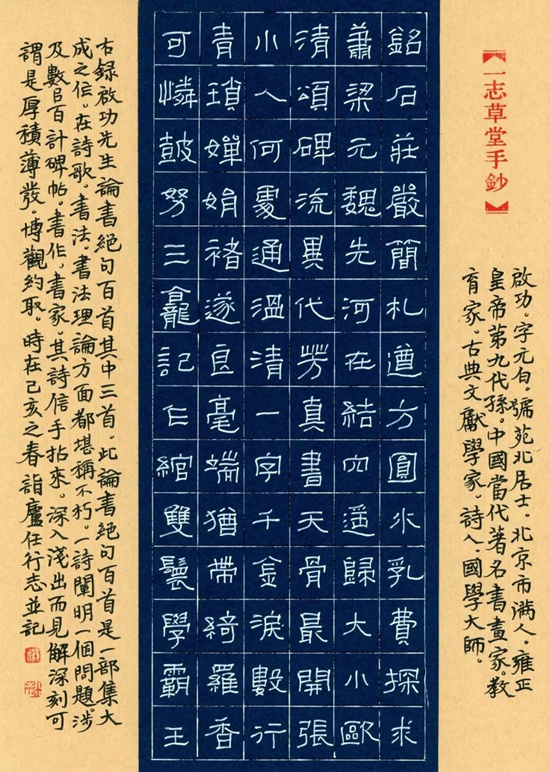 【一志草堂手鈔】
啟功。字元白。號苑北居士。北京市滿人。雍正
皇帝第九代孫。中國當代著名書畫家。教
育家。古典文獻學家。詩人。國學大師。
銘石莊嚴簡札遒方圓水乳費探求
蕭梁元魏先河在結穴遥歸大小歐
清頌碑流異代芳真書天骨最開張
小人何處通溫清一字千金淚數行
青瑣嬋娟褚遂良毫端猶帶綺羅香
可憐鼓努三龕記仁綰雙鬟學霸王
右錄啟功先生論書絕句百首其中三首。此論書絕句百首是一部集大
成之作。在詩歌。書法。書法理論方面都堪稱不朽。一詩闡明一個問題。涉
及數㠯百計碑帖。書作。書家。其詩信手拈來。深入淺出而見解深刻可
謂是厚積薄發。博觀約取。時在己亥之春詣廬任行志並記